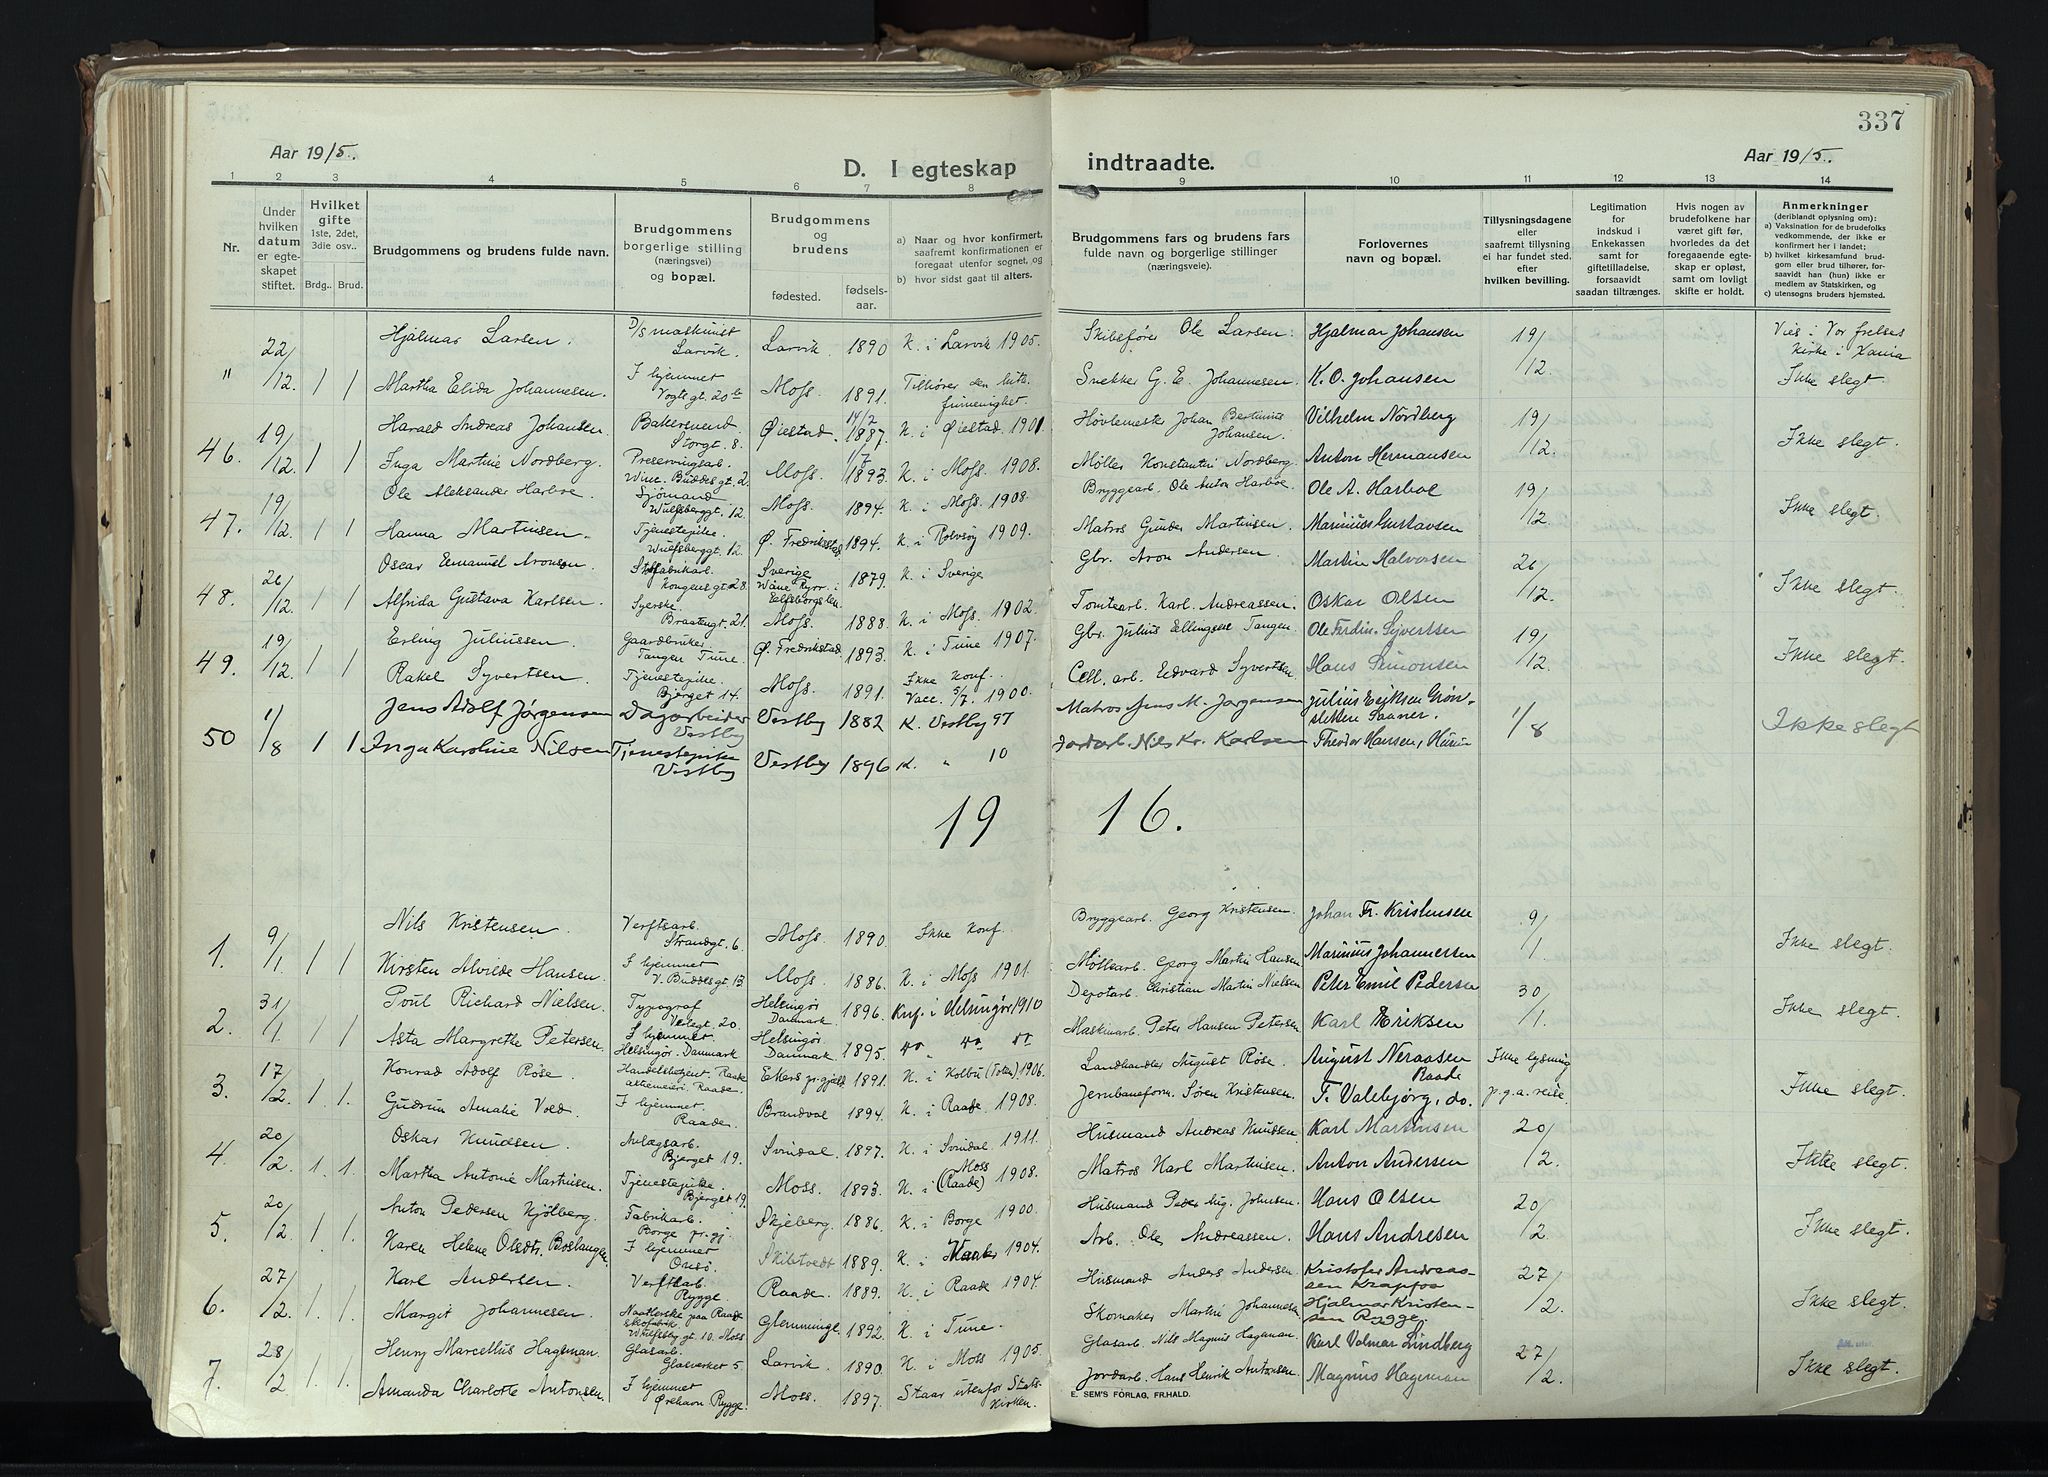 337
Aar 1915.
D. I egteskap indtraadte.
Aar 1915.
1 2 3 4 5 6 7 8 9 10 11 12 13 14
Nr.
Under hvilken datum er egteskapet stiftet.
Hvilket gifte 1ste, 2det, 3die osv..
Brdg.. Brud.
Brudgommens og brudens fulde navn.
Brudgommens borgerlige stilling (næringsvei) og bopæl.
Brudgommens og brudens
fødested.
fødselsaar.
a) Naar og hvor konfirmert, saafremt konfirmationen er foregaat utenfor sognet, og
b) hvor sidst gaat til alters.
Brudgommens fars og brudens fars fulde navn og borgerlige stillinger (næringsveie).
Forlovernes navn og bopæl.
Tillysningsdagene eller saafremt tillysning ei har fundet sted, efter hvilken bevilling.
Legitimation for indskud i Enkekassen samt for giftetilladelse, forsaavidt saadan tiltrænges.
Hvis nogen av brudefolkene har været gift før, hvorledes da det foregaaende egteskap er opløst, samt om lovligt skifte er holdt.
Anmerkninger (deriblandt oplysning om):
a) Vaksination for de brudefolks vedkommende, der ikke er konfirmert her i landet;
b) hvilket kirkesamfund brudgom eller brud tilhører, forsaavidt han (hun) ikke er medlem av Statskirken, og
c) utensogns bruders hjemsted.
" 22/12. 1 1 Hjalmar Larsen. D/s maskinist Larvik. Larvik. 1890 K. i Larvik 1905. Skibsfører Ole Larsen. Hjalmar Johansen 19/12. Vies i Vor frelses Kirke i Kania
Martha Elida Johannesen. I hjemmet Vogts gt. 20 Moss. 1891. Tilhører den luth. frimenighet. Snekker G. E. Johannesen. K. O. Johansen Ikke slegt
46. 19/12. 1 1 Harald Andreas Johansen. Bakersvend Storgt. 8. Øiestad. 14/2 1887. K. i Øiestad. 1901. Høvlemester Johan Bertinius Johansen. Vilhelm Nordberg 19/12. Ikke slegt.
Inga Martine Nordberg. Preservingsarb. Wine. Buddes gt. 2. Moss. 1/7 1893 K. i Moss. 1908. Møller Konstantin Nordberg. Anton Hermansen
47. 19/12. 1 1 Ole Aleksander Harboe. Sjømand Wulfsberggt. 12. Moss. 1894. K. i Moss. 1908. Bryggearb. Ole Anton Harboe. Ole A. Harboe 19/12. Ikke slegt.
Hanna Martinsen. Tjenestepike. Wulfsberggt. 12. Ø. Fredrikstad 1894. K. i Rolvsøy 1909. Matros Gunder Martinsen. Marinius Gustavsen
48. 26/12. 1 1 Oscar Emanuel Aronson. Stoffabrikarb. Kongens gt. 28. Sverige Wäne Ryrr. i Elfsborgs len 1879. K. i Sverige Gbr. Aron Andersen. Martin Halvorsen 26/12. Ikke slegt.
Alfrida Gustava Karlsen. Syerske. Braatengt. 21. Moss. 1888. K. i Moss. 1902. Tomtearb. Karl. Andreassen. Oskar Olsen
49. 19/12. 1 1 Erling Juliussen. Gaardbruker. Tangen Tune. Ø. Fredrikstad 1893. K. i Tune 1907. Gbr. Julius Ellingsen Tangen. Ole Ferdin. Syvertsen 19/12. Ikke slegt.
Rakel Syvertsen. Tjenestepike. Bjerget 14. Moss. 1891. Ikke konf. Vacc. 3/7. 1900. Cell. arb. Edvard Syvertsen. Hans Simonsen
50 1/8 1 1 Jens Adolf Jørgensen Dagarbeider Vestby Vestby 1882 K. Vestby 97 Matros Jens M. Jørgensen Julius Eriksen Grønslettene Saaner. 1/8 Ikke slegt
Inga Karoline Nilsen Tjenestepike Vestby Vestby 1896 K. " 10 Jordarb. Nils Kr. Karlsen Theodor Hansen,
19 16.
1. 9/1 1 1 Nils Kristensen. Verftsarb. Strandgt. 6. Moss. 1890. Ikke konf. Bryggearb. Georg Kristensen. Johan Fr. Kristensen 9/1. Ikke slegt.
Kirsten Alvilde Hansen. I hjemmet V. Buddes gt. 13 Moss. 1886. K. i Moss 1901. Møllearb. Georg Martin Hansen Marinius Johannessen
2. 31/1. 1 1 Poul Richard Nielsen. Typograf Verlegt. 20. Helsingör Danmark. 1896. Knf. i Helsingør 1910 Depotarb. Christian Martin Nielsen. Peter Emil Pedersen 30/1. Ikke slegt.
Asta Margrethe Petersen. I hjemmet. Helsingør. Danmark Helsingör Danmark. 1895. do " do do Maskinarb. Peter Hansen Petersen Karl Eriksen
3. 17/2. 1 1. Konrad Adolf Røse. Handelsbetjent. Raade aktiemeieri. Raade. Ekers pr.gjeld 1891. K. i Kolbu (Toten). 1906. Landhandler August Røse. August Neraasen Raade Ikke lysning p.g.a. reise. Ikke slegt.
Gudrun Amalie Vold. I hjemmet. Raade. Brandval 1894. K. i Raade. 1908. Jernbaneform. Søren Kristensen. F. Valebjørg, do.
4. 20/2. 1. 1. Oskar Knudsen. Anlægsarb. Bjerget 19. Svindal. 1897. K. i Svindal 1911. Husmand Andreas Knudsen. Karl Martinsen 20/2. Ikke slegt.
Martha Antonie Martinsen. Tjenestepike. Bjerget 19. Moss. 1893. K. i Moss (Raade) 1908. Matros Karl Martinsen. Anton Andersen
5. 20/2. 1. 1. Anton Pedersen Kjølberg. Fabrikarb. Borge pr.gj. Skjeberg. 1886. K. i Borge 1900. Husmand Peder Aug. Johnsen. Hans Olsen 20/2. Ikke slegt.
Karen Helene Olsdtr. Boslangen. I hjemmet Onsø. Skibtvedt 1889. K. i 1904. Arb. Ole Andreassen. Hans Andresen
6. 27/2. 1. 1. Karl Andersen. Verftsarb. Rygge. Raade. 1889. K. i Raade 1904. Husmand Anders Andersen. Kristofer Andreassen Krapfos 27/2. Ikke slegt.
Margit Johannesen. Naatlerske paa Raade skofabrik. Wulfsby gt. 10. Moss Glemminge 1892. K. i Tune. Skomaker Martin Johannesen Hjalmar Kristensen Rygge.
7. 28/2 1. 1. Henry Marcellius Hageman. Glasarb. Glasverket 5 Larvik 1890. K. i Moss 1905. Glasarb. Nils Magnus Hageman. Karl Valmar Lindberg 27/2. Ikke slegt.
Amanda Charlotte Antonsen. I hjemmet Ørehavn Rygge. Moss. 1897. Staar utenfor Statskirken. Jordarb. Hans Henrik Antonsen. Magnus Hageman
E. SEM'S FORLAG, FR.HALD.